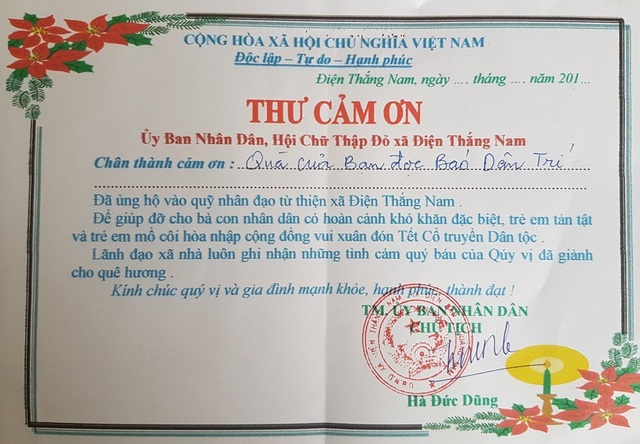 CỘNG HÒA XÃ HỘI CHỦ NGHĨA VIỆT NAM
Độc lập – Tự do – Hạnh phúc
Điện Thắng Nam, ngày .... tháng .... năm 201...
THƯ CẢM ƠN
Ủy Ban Nhân Dân, Hội Chữ Thập Đỏ xã Điện Thắng Nam
Chân thành cảm ơn : Quà của Bạn đọc Báo Dân Trí
Đã ủng hộ vào quỹ nhân đạo từ thiện xã Điện Thắng Nam .
Để giúp đỡ cho bà con nhân dân có hoàn cảnh khó khăn đặc biệt, trẻ em tàn tật
và trẻ em mồ côi hòa nhập cộng đồng vui xuân đón Tết Cổ truyền Dân tộc .
Lãnh đạo xã nhà luôn ghi nhận những tình cảm quý báu của Qúy vị đã giành
cho quê hương .
Kính chúc quý vị và gia đình mạnh khỏe, hạnh phúc, thành đạt !
TM. ỦY BAN NHÂN DÂN
CHỦ TỊCH
Hà Đức Dũng